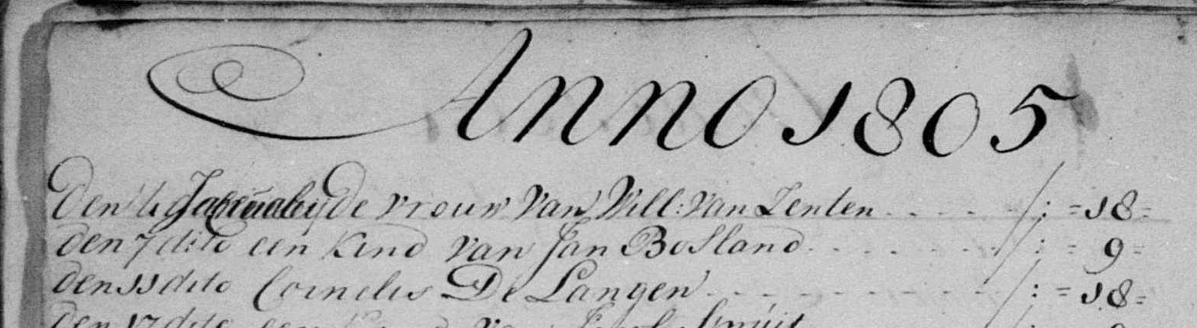 Anno 1805
Den de vrouw van Will: van Zenten .... /: =18=
den 7 dito een Kind van Jan Bosland ..... /: = 9=
den 11 dito Cornelis De Langen ..... /: =18=
den 17 dito een